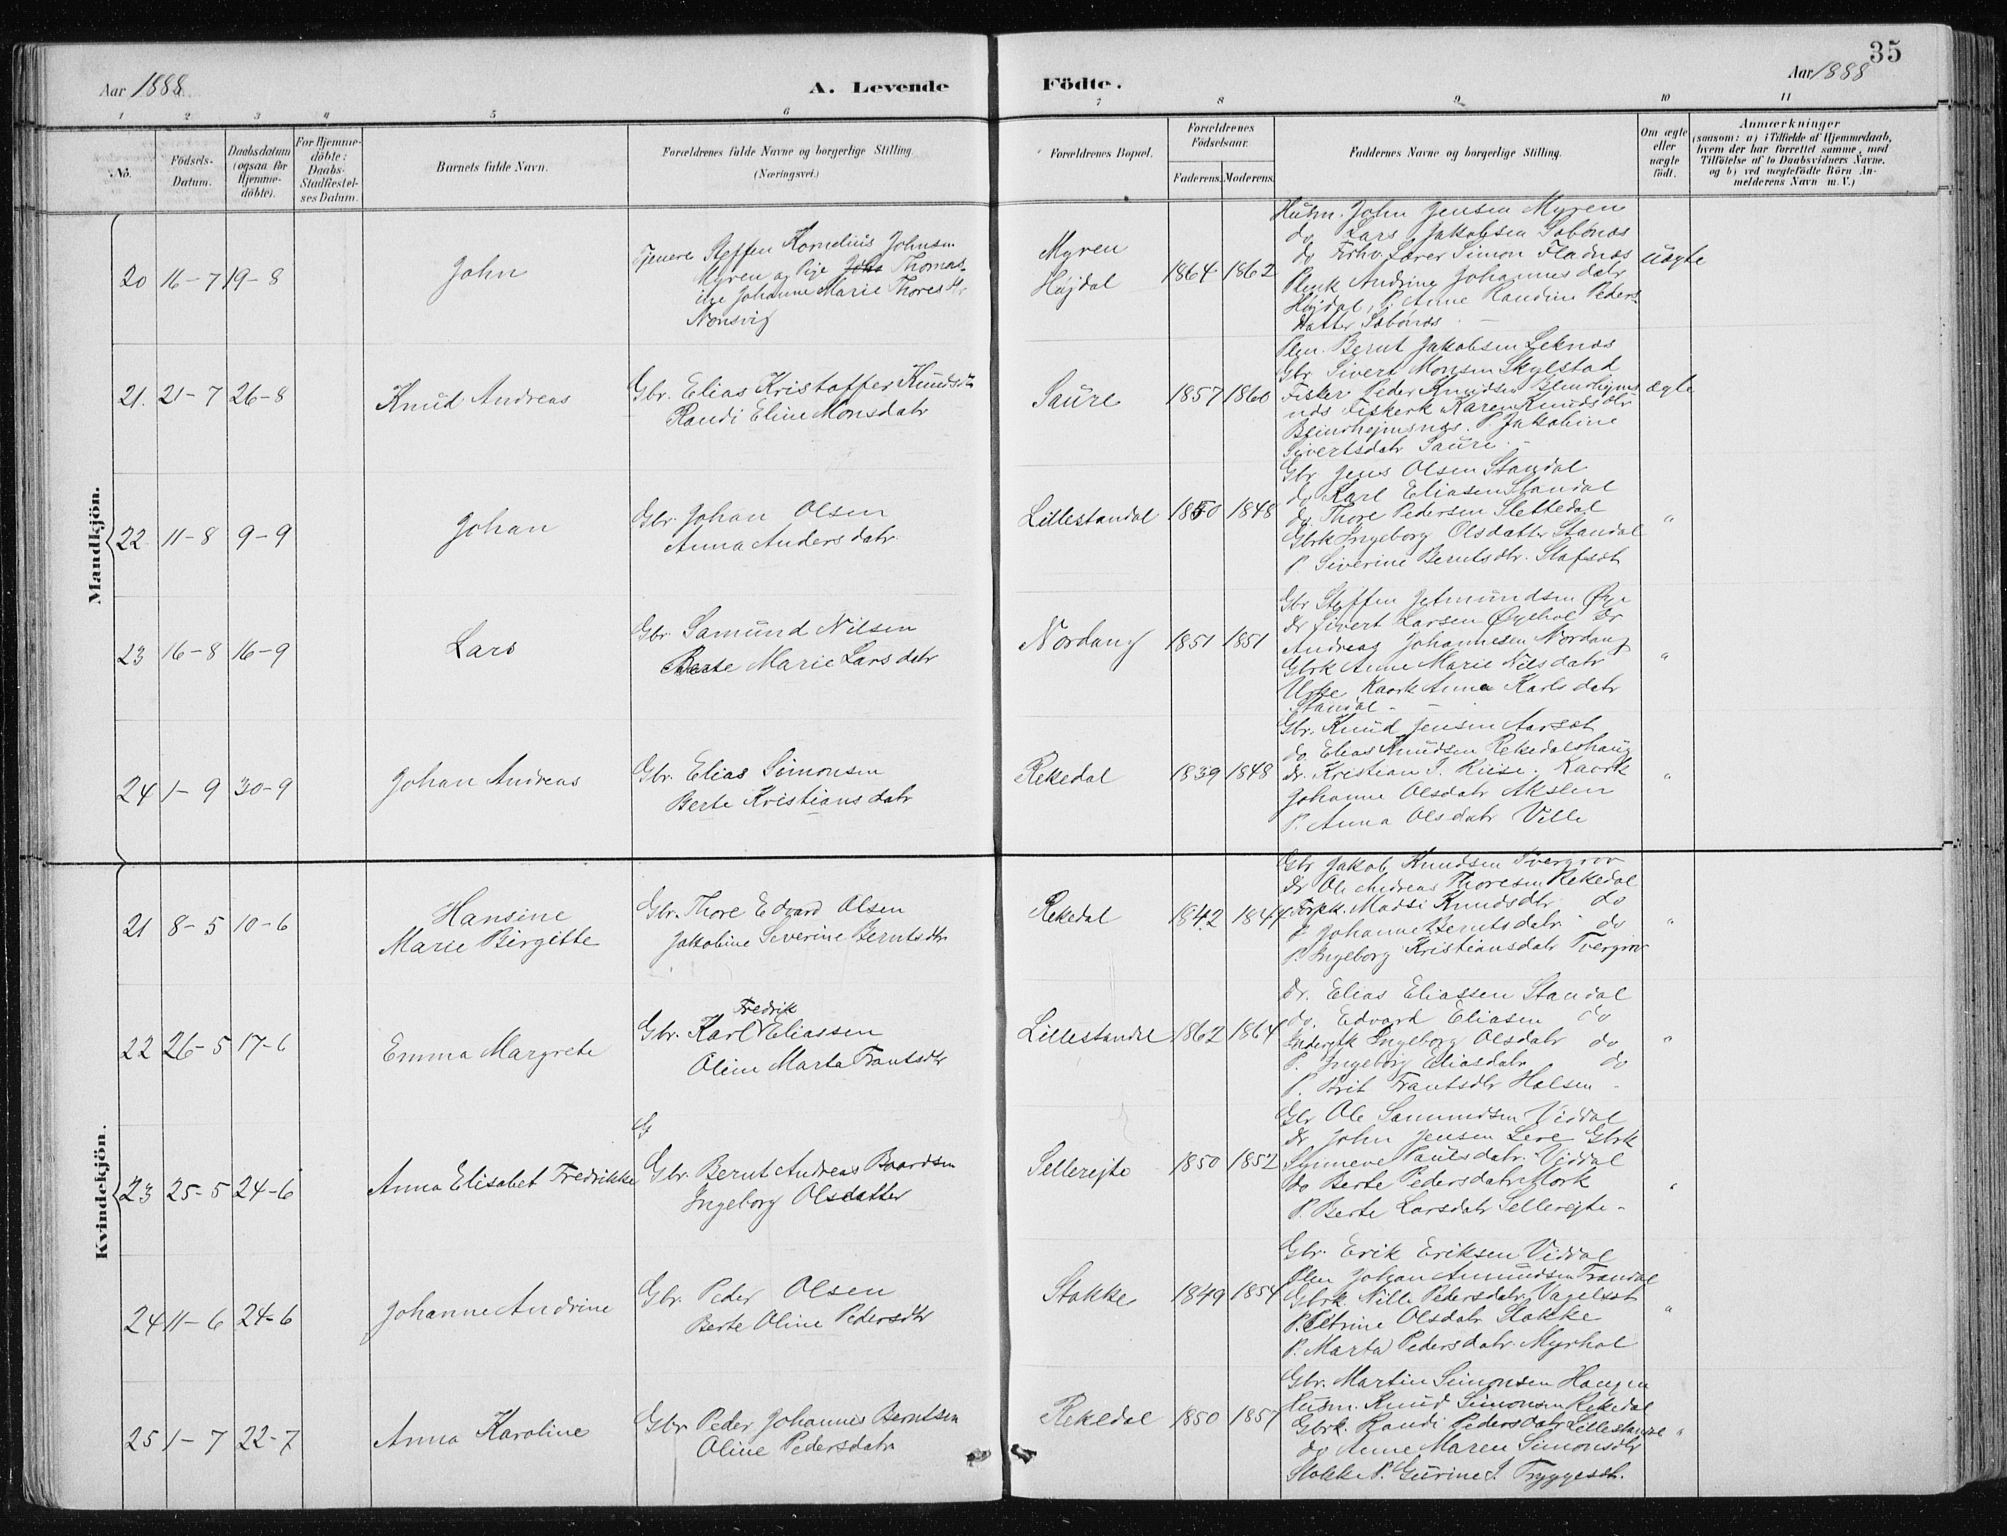 35
Aar 1888.
A. Levende
Födte.
Aar 1888
1 2 3 4 5 6 7 8 9 10 11
No.
Födsels-
Datum.
Daabsdatum
(ogsaa för
Hjemme-
döbte).
For Hjemme-
döbte:
Daabs-
Stadfæstel-
ses Datum.
Barnets fulde Navn.
Forældrenes fulde Navne og borgerlige Stilling.
(Næringsvei.)
Forældrenes Bopæl.
Forældrenes
Födselsaar.
Faderens. Moderens.
Faddernes Navne og borgerlige Stilling.
Om ægte
eller
uægte
födt.
Anmærkninger
(saasom: a) i Tilfælde af Hjemmedaab,
hvem der har forrettet samme, med
Tilföielse af to Daabsvidners Navne,
og b) ved uægtefödte Börn An-
melderens Navn m. V.)
Mandkjön.
20 16-7 19-8
John
Tjener Steffen Kornelius Johnsen
Myren og Pige Thomas-
ine Johanne Marie Thores
Nonsvig
Myren
Højdal
1864 1862
Husm. John Jensen Myren
do Lars Jakobsen Sæbönæs
do Forhv. Lærer Simon Fladnæs
Andrine Johannesdatr
Højdal, P. Anne Randine Peders-
datter Sæbönæs
uægte
21. 21-7 26-8
Knud Andreas
Gbr. Elias Kristoffer Knuds
Randi Eline Monsdatr
Saure
1857 1860
Bernt Jakobsen Leknæs
Gbr Sivert Monsen Skylstad
Fisker Peder Knudsen
Karen Knudsdtr
P Jakobine
Sivertsdatr Saure
ægte
22. 11-8 9-9
Johan
Gbr. Johan Olsen
Anna Andersdatr.
Lillestandal
1850 1848
Gbr Jens Olsen Standal
do Karl Eliasen Standal
do Thore Pedersen Slettedal
Gbrk Ingeborg Olsdatter Standal
P. Siverine Berntsdtr.
"
23 16-8 16-9
Lars
Gbr. Samund Nilsen
Berte Marie Larsdatr
Nordang
1851 1851
Gbr Steffen Jetmundsen Øye
Dr Sivert Larsen Dr
Andreas Johannesen Nordang
Gbrk Anne Marie Nilsdatr
Urke Kaark Anna Karlsdatr
Standal -
"
24 1-9 30-9
Johan Andreas
Gbr. Elias Simonsen
Berte Kristiansdatr
Rekedal
1839 1848
Gbr. Knud Jensen Aarsæt
do. Elias Knudsen Rekedalshaug
Dr. Kristian T. Riise. Kaark
Johanne Olsdatr Akslen
P. Anna Olsdatr Ville
"
Kvindekjön.
21 8-5 10-6
Hansine
Marie Birgitte
Gbr. Thore Edvard Olsen
Jakobine Severine Berntsdtr
Rekedal
1842 1844
Gbr Jakob Knudsen Tvergrov
Dr Ole Andreas Thoresen Rekedal
Madsi Knudsdtr do
P Johanne Berntsdatr do
P. Ingeborg Kristiansdatr Tvergrov
"
22 26-5 17-6
Emma Margrete
Fredrik
Gbr. Karl Eliassen
Oline Marta Frantsdtr
Lillestandal
1862 1864
Dr. Elias Eliassen Standal
do. Edvard Eliasen do
Ingeborg Olsdatr do
P. Ingeborg Eliasdatr do
P. Brit Frantsdtr Holsen
"
23 25-5 24-6
Anna Elisabet Fredrikke
G
Gbr. Bernt Andreas Baardsen
Ingeborg Olsdatter
Sellerejte
1850 1852
Gbr Ole Samundsen Viddal
Dr John Jensen Gbrk
Synneve Paulsdatr. Viddal
do Berte Pedersdatr Mork
P. Berte Larsdatr Sellerejte -
"
24 11-6 24-6
Johanne Andrine
Gbr. Peder Olsen
Berte Oline Pedersdtr
Stokke
1849 1854
Gbr. Erik Eriksen Viddal
Johan Amundsen Trandal
Gbrk Nille Pedersdatr
P. Petrine Olsdatr Stokke
P. Marta Pedersdatr. Myrhol
"
25 1-7 22-7
Anna Karoline
Gbr. Peder Johannes Berntsen
Oline Pedersdatr
Rekedal
1850 1857
Gbr. Martin Simonsen Haugen
Husm. Knud Simonsen Rekedal
Gbrk. Randi Pedersdatr Lillestandal
do Anne Maren Simonsdtr
Stokke P. Gurine J. Tryggesdt.
"